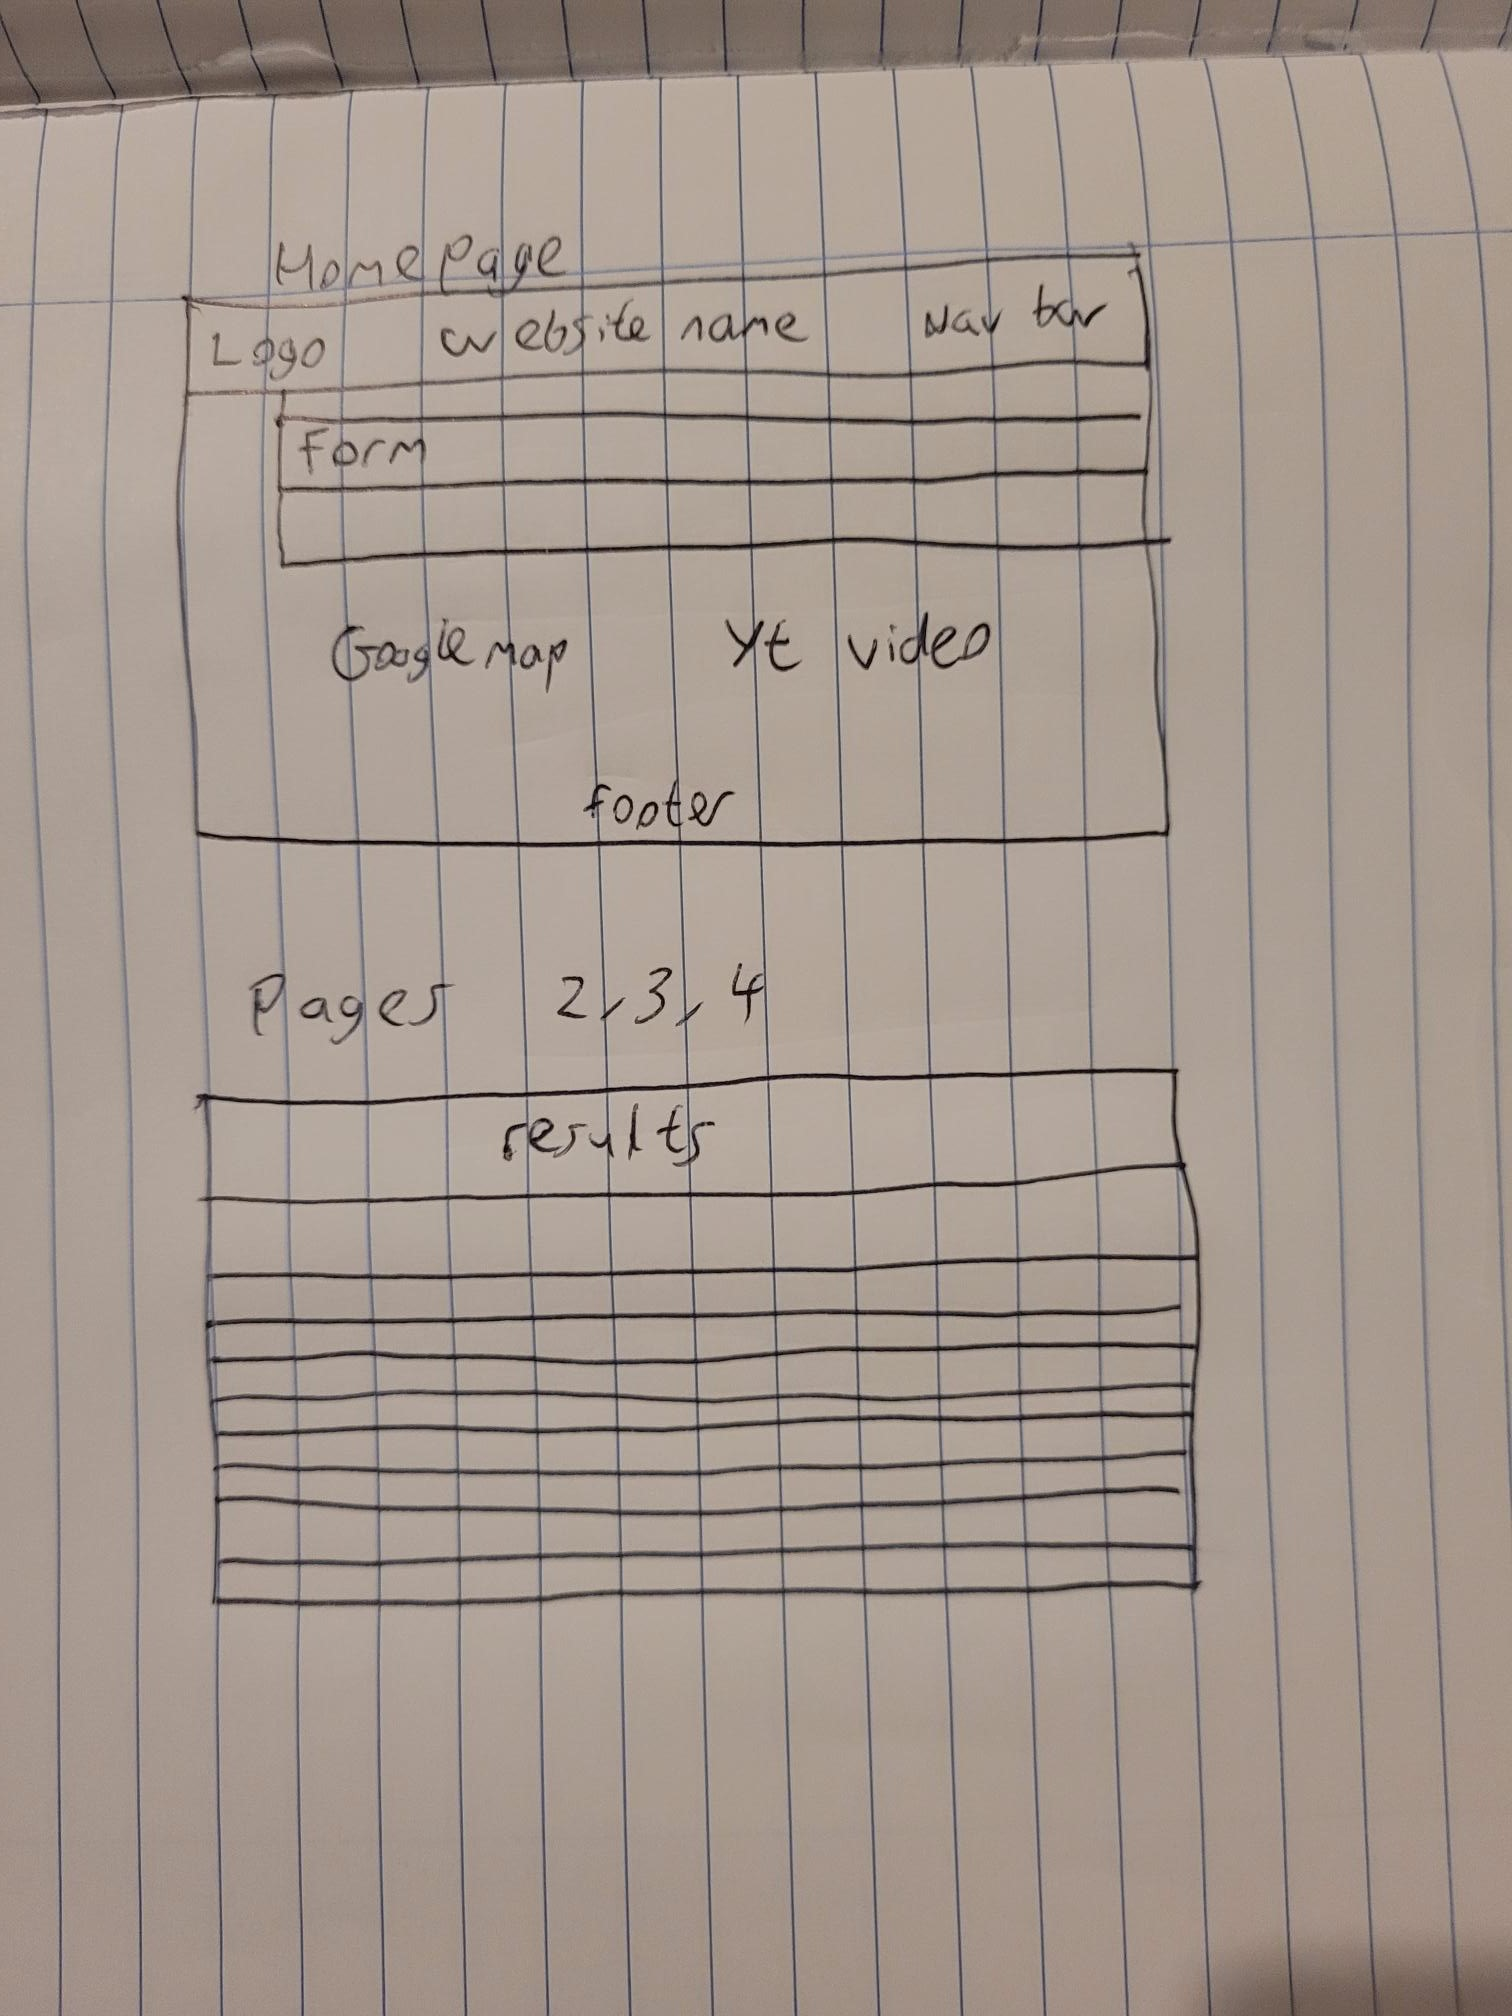 Home Page
Logo website name Nav bar
Form
Google map yt video
footer
Pages 2, 3, 4
results